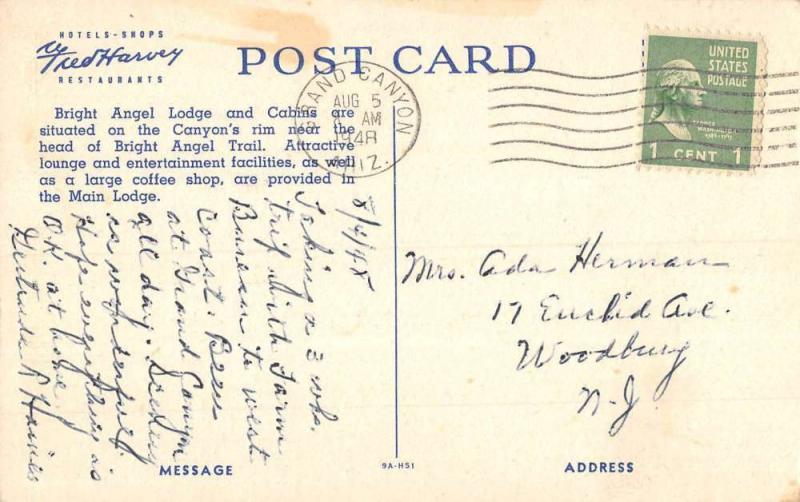 HOTELS - SHOPS
Fred Harvey
RESTAURANTS
POST CARD
Bright Angel Lodge and Cabins are
situated on the Canyon's rim near the
head of Bright Angel Trail. Attractive
lounge and entertainment facilities, as well
as a large coffee shop, are provided in
the Main Lodge.
GRAND CANYON
AUG 5
AM
1948
ARIZ.
UNITED
STATES
POSTAGE
GEORGE
WASHINGTON
1 CENT 1
8/4/48
Taking a 3 wks.
trip with Farm
Bureau to west
Coast. Been
at Grand Canyon
all day. Scenery
is wonderful.
Hope everything is
O.K. at home.
Gertrude R Haines
Mrs. Ada Herman
17 Euclid Ave.
Woodbury
N-J
MESSAGE
9A-H51
ADDRESS